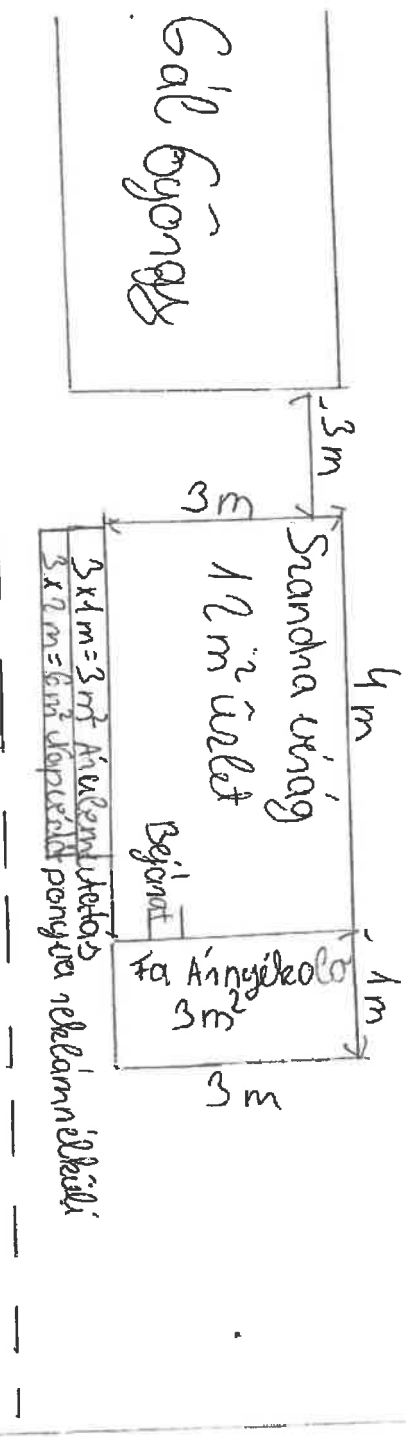 Gál Gyöngy
3m
3m
4m
Szandra virág
12 m² üzlet
Bejárat
1m
Fa Árnyékoló
3m²
3m
3x1m=3m² Árubemutatás
3x2m=6m² Napvédő ponyva reklámnélküli